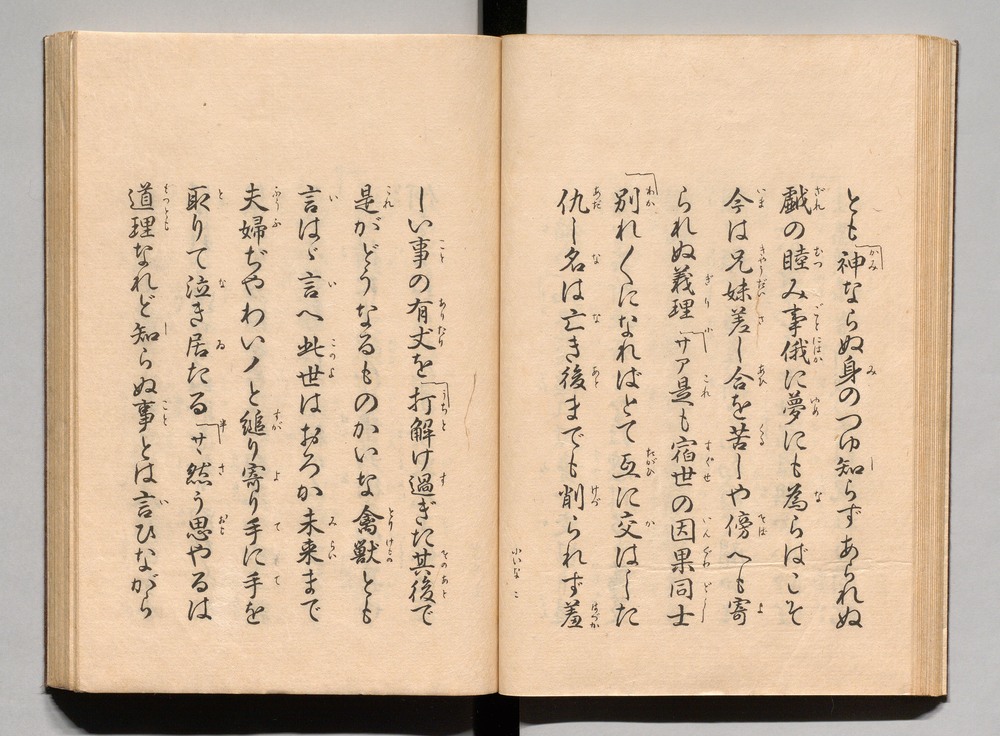 とも神ならぬ身のつゆ知らずあられぬ
戯の睦み事俄に夢にも為らばこそ
今は兄妹差し合を苦しや傍へも寄
られぬ義理サア是も宿世の因果同士
別れ〱になればとて互に交はした
仇し名は亡き後までも削られず羞
しい事の有丈を打解け過ぎた其後で
是がどうなるものかいな禽獣とも
言はゞ言へ此世はおろか未来まで
夫婦ぢやわいノと縋り寄り手に手を
取りて泣き居たるサ然う思やるは
道理なれど知らぬ事とは言ひながら